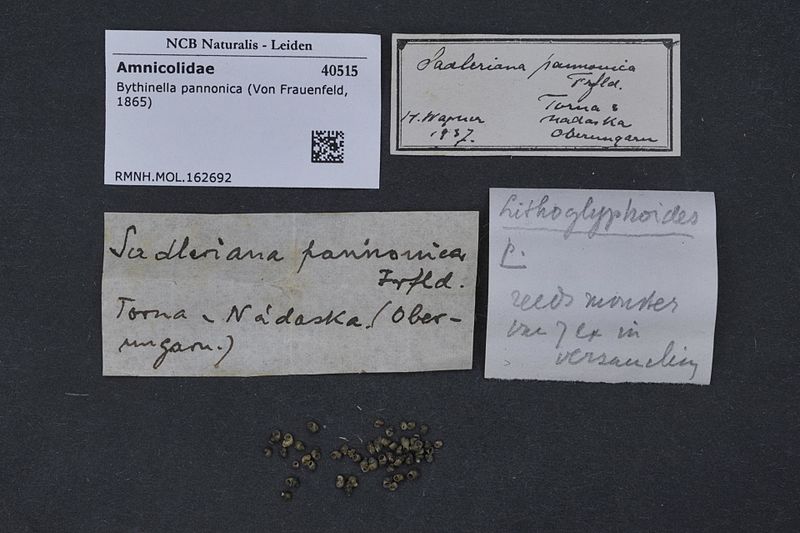 NCB Naturalis - Leiden
Amnicolidae 40515
Bythinella pannonica (Von Frauenfeld,
1865)
RMNH.MOL.162692
Sadleriana pannonica
Frfld.
Torna
H. Wagner Nadaska
1937. Oberungarn
Sadleriana pannonica
Frfld.
Torna Nádaska. (Ober-
ungarn.)
Lithoglyphoides
p.
reeds monster
van 7 ex in
verzameling